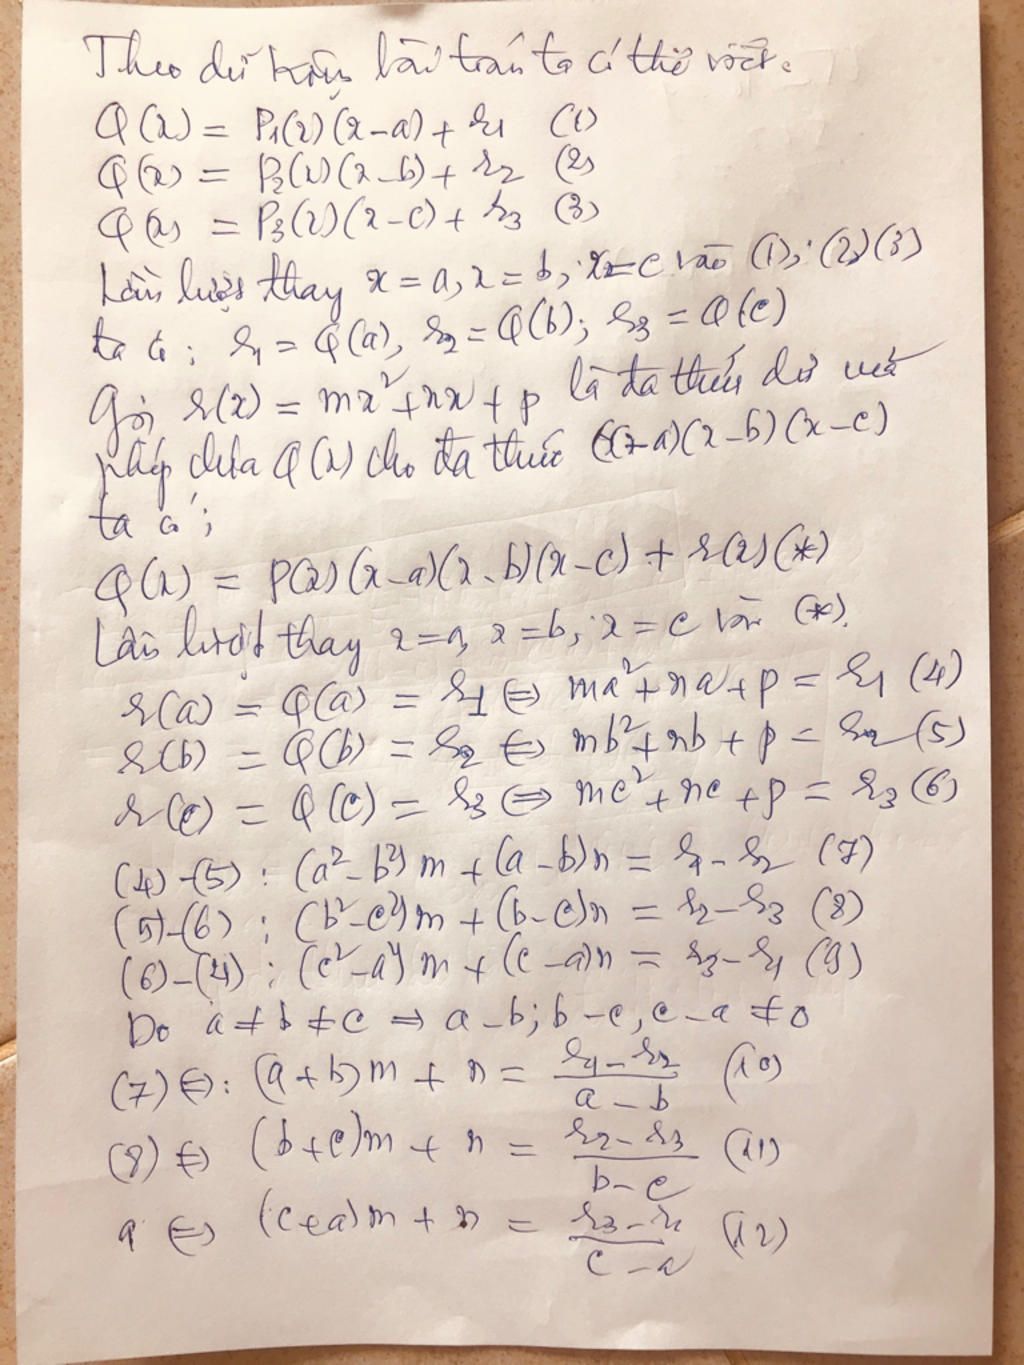 Theo dữ kiện bài toán ta có thể viết.
Q(x) = P₁(x)(x-a) + r₁ (1)
Q(x) = P₂(x)(x-b) + r₂ (2)
Q(x) = P₃(x)(x-c) + r₃ (3)
Lần lượt thay x = a, x = b, x = c vào (1); (2), (3)
ta có; r₁ = Q(a), r₂ = Q(b); r₃ = Q(c)
Gọi r(x) = mx² + nx + p là đa thức dư của
phép chia Q(x) cho đa thức (x-a)(x-b)(x-c)
ta có;
Q(x) = P(x)(x-a)(x-b)(x-c) + r(x) (*)
Lần lượt thay x=a, x=b, x=c vào (*).
r(a) = Q(a) = r₁ ⇔ ma² + na + p = r₁ (4)
r(b) = Q(b) = r₂ ⇔ mb² + nb + p = r₂ (5)
r(c) = Q(c) = r₃ ⇔ mc² + nc + p = r₃ (6)
(4)-(5) : (a² - b²)m + (a-b)n = r₁ - r₂ (7)
(5)-(6) : (b² - c²)m + (b-c)n = r₂ - r₃ (8)
(6)-(4) : (c² - a²)m + (c-a)n = r₃ - r₁ (9)
Do a ≠ b ≠ c ⇒ a-b; b-c, c-a ≠ 0
(7) ⇔: (a+b)m + n = (r₁ - r₂)/(a - b) (10)
(8) ⇔ (b+c)m + n = (r₂ - r₃)/(b - c) (11)
9 ⇔ (c+a)m + n = (r₃ - r₁)/(c - a) (12)